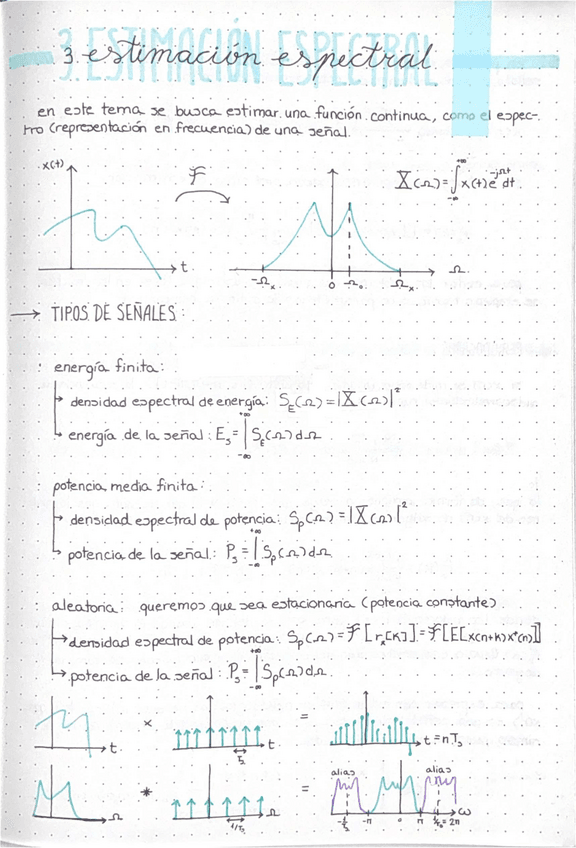 3. ESTIMACIÓN ESPECTRAL
3. estimación espectral
en este tema se busca estimar una función continua, como el espec-
tro (representación en frecuencia) de una señal.
x(t)
F
X(Ω) = ∫_{-∞}^{+∞} x(t) e^{-jΩt} dt.
t
-Ωₓ 0 Ω₀ Ωₓ Ω
→ TIPOS DE SEÑALES:
: energía finita:
→ densidad espectral de energía: S_E(Ω) = |X(Ω)|²
→ energía de la señal: E_s = ∫_{-∞}^{+∞} S_E(Ω) dΩ
: potencia media finita:
→ densidad espectral de potencia: S_p(Ω) = |X(Ω)|²
→ potencia de la señal: P_s = ∫_{-∞}^{+∞} S_p(Ω) dΩ
: aleatoria: queremos que sea estacionaria (potencia constante).
→ densidad espectral de potencia: S_p(Ω) = F[r_x[k]] = F[E[x(n+k)x*(n)]]
→ potencia de la señal: P_s = ∫_{-∞}^{+∞} S_p(Ω) dΩ.
t × T_s t = t = nT_s
alias alias
Ω * 1/T_s Ω = -π 0 π = 2π ω